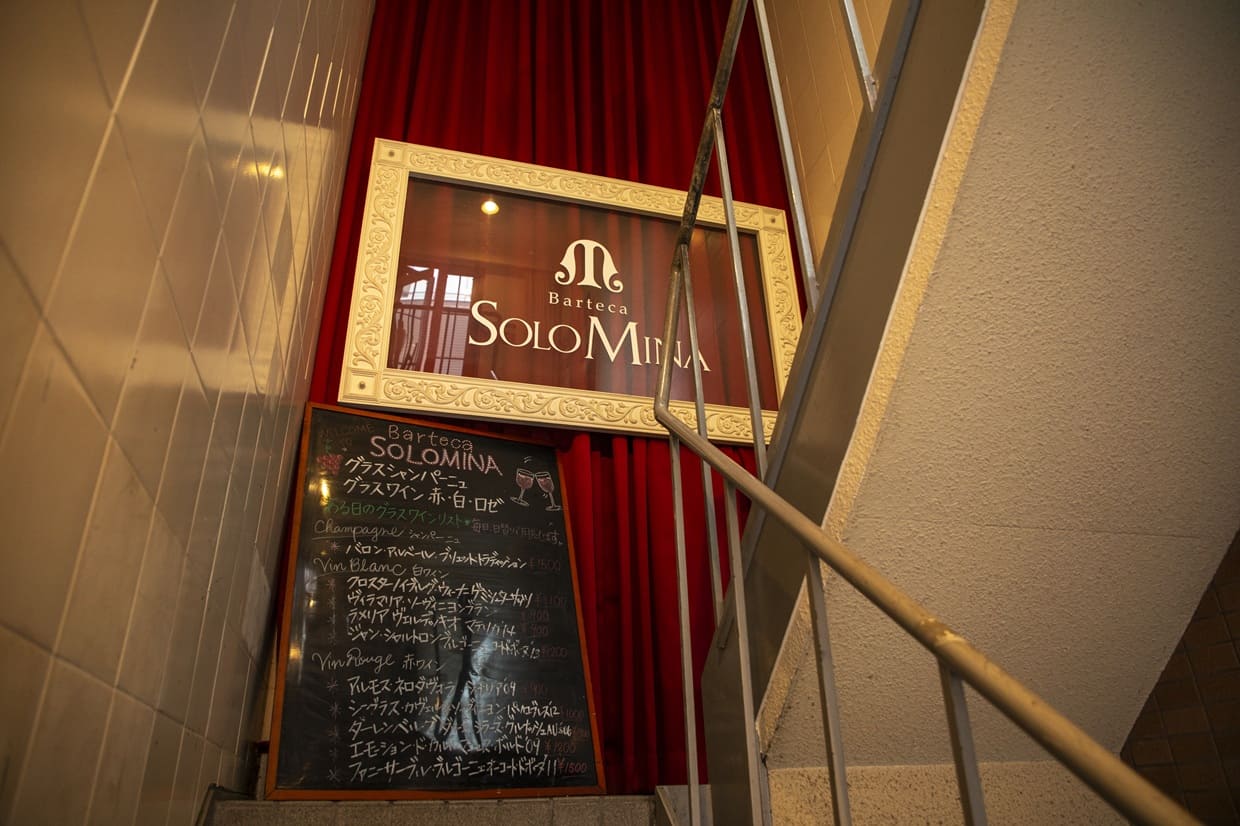 M
Barteca
SOLOMINA
WELCOME
TO
Barteca
SOLOMINA
グラスシャンパーニュ
グラスワイン 赤・白・ロゼ
ある日のグラスワインリスト
毎日、日替り
Champagne シャンパーニュ
* バロン・アルベール・ブリュット・トラディション ¥1500
Vin Blanc 白ワイン
* クロスターノイブルグ・ヴィーナー ¥1100
* ヴィラマリア・ソーヴィニヨンブラン ¥900
* ラメリア ヴェルディッキオ マテリカ'14 ¥900
* ジャン・シャルトロン ブルゴーニュ コート・ド・ボーヌ'13 ¥1200
Vin Rouge 赤ワイン
* アルモス・ネロダヴォラ シチリア'09 ¥900
* シーグラス・カヴェルネ・ソーヴィニヨン パソロブレス'12 ¥1000
* ダーレンベルグ
* エモーション・ド ボルドー'09 ¥1200
* ファニーサーブル・ブルゴーニュオーコート・ド・ボーヌ'11 ¥1500